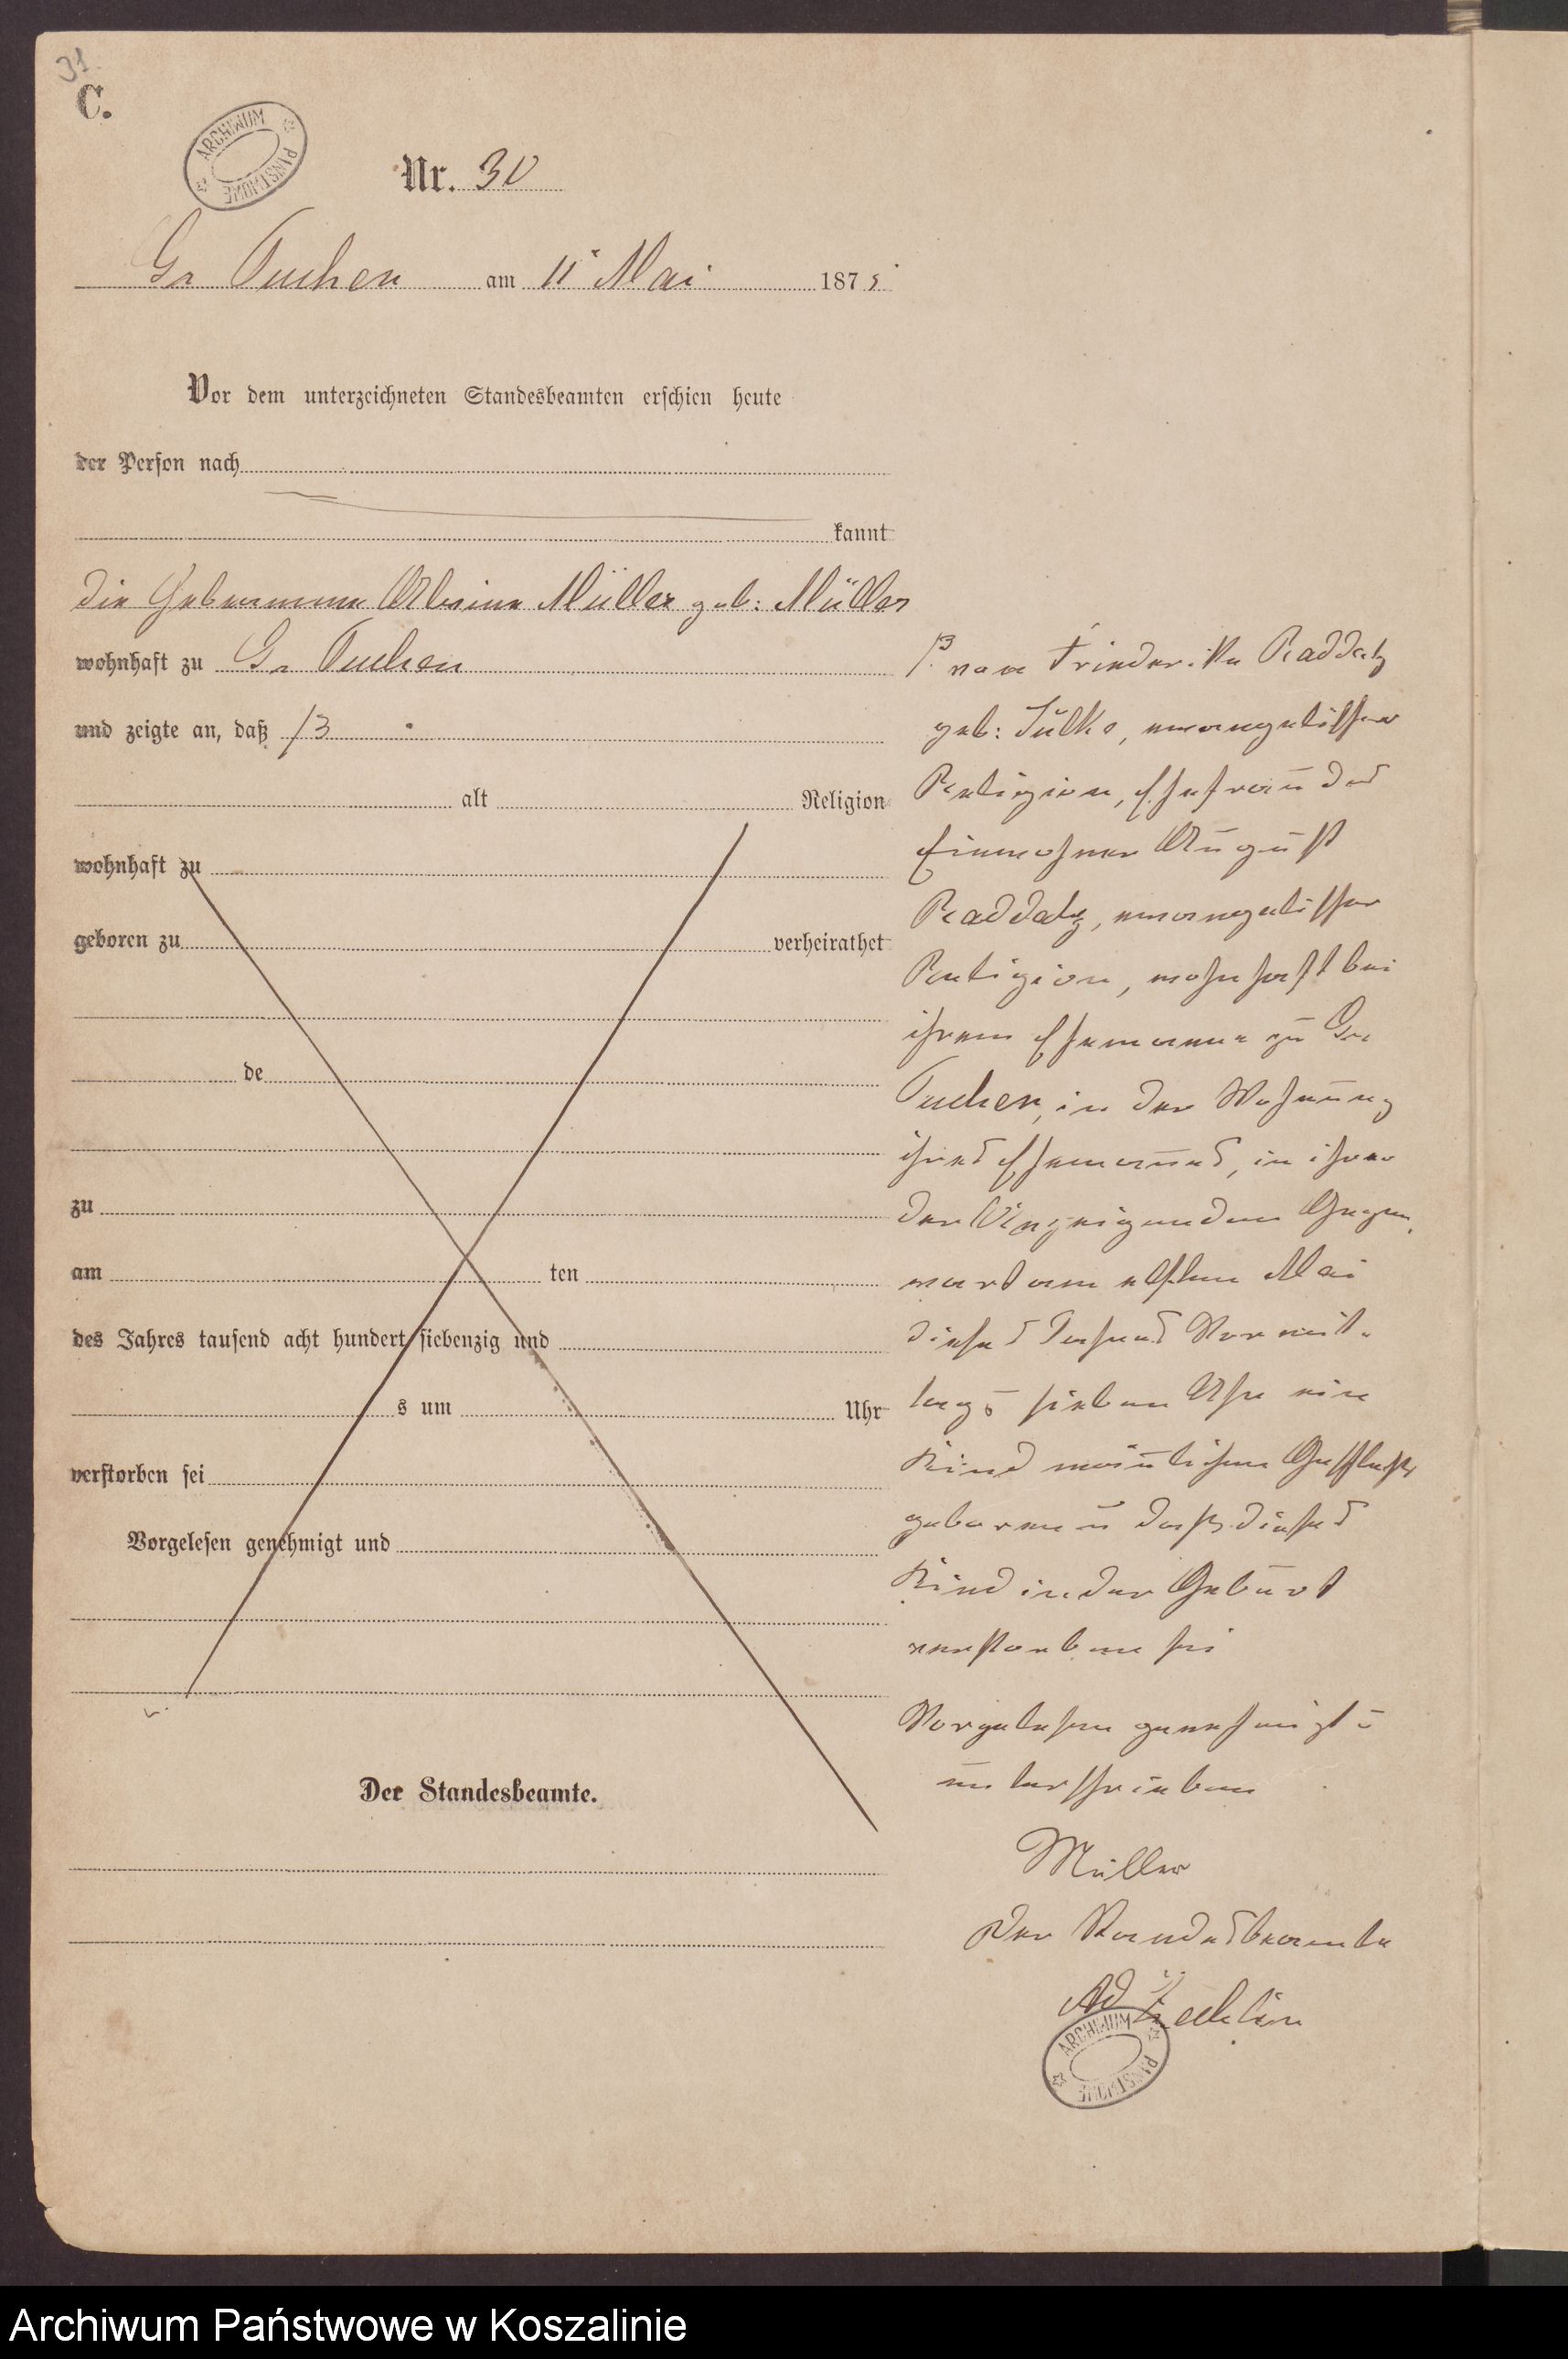 31.
C.
ARCHIWUM PAŃSTWOWE
Nr. 30
Gr Tuchen am 11t Mai 1875
Vor dem unterzeichneten Standesbeamten erschien heute
der Person nach
kannt
die Hebamme Albine Müller geb: Müller
wohnhaft zu Gr Tuchen
und zeigte an, daß /3
alt Religion
wohnhaft zu
geboren zu verheirathet
de
zu
am ten
des Jahres tausend acht hundert siebenzig und
s um Uhr
verstorben sei
Vorgelesen genehmigt und
Der Standesbeamte.
von Friederike Raddatz
geb: Sülke, evangelischer
Religion, Ehefrau des
Einwohner August
Raddatz, evangelischer
Religion, wohnhaft bei
ihrem Ehemanne zu Gr
Tuchen, in der Wohnung
ihres Ehemannes, in ihrer
der Anzeigenden Gegen
wart am elften Mai
dieses Jahres Vormit-
tags sieben Uhr ein
Kind mänlichen Geschlechts
geboren u daß dieses
Kind in der Geburt
verstorben sei
Vorgelesen genehmigt u
unterschrieben
Müller
Der Standesbeamte
Ad Zechlin
ARCHIWUM PAŃSTWOWE
Archiwum Państwowe w Koszalinie